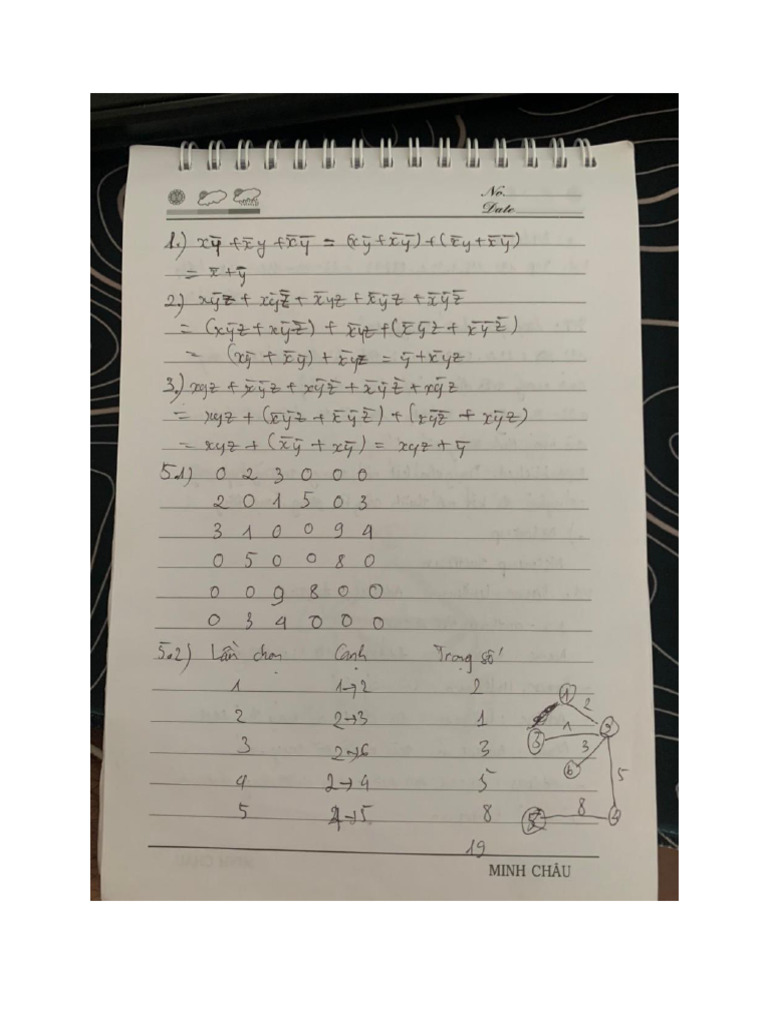 No.
Date
1.) xȳ + x̄y + x̄ȳ = (xȳ + x̄ȳ) + (x̄y + x̄ȳ)
= x̄ + ȳ
2.) xȳz + xȳz̄ + x̄yz + x̄ȳz + x̄ȳz̄
= (xȳz + xȳz̄) + x̄yz + (x̄ȳz + x̄ȳz̄)
= (xȳ + x̄ȳ) + x̄yz = ȳ + x̄yz
3.) xyz + x̄ȳz + xȳz̄ + x̄ȳz̄ + xȳz
= xyz + (x̄ȳz + x̄ȳz̄) + (xȳz̄ + xȳz)
= xyz + (x̄ȳ + xȳ) = xyz + ȳ
5.1) 0 2 3 0 0 0
2 0 1 5 0 3
3 1 0 0 9 4
0 5 0 0 8 0
0 0 9 8 0 0
0 3 4 0 0 0
5.2) Lần chọn Cạnh Trọng số
1 1→2 2
2 2→3 1
3 2→6 3
4 2→4 5
5 4→5 8
19
1
2
2
1
3
3
6
5
8
5
4
MINH CHÂU